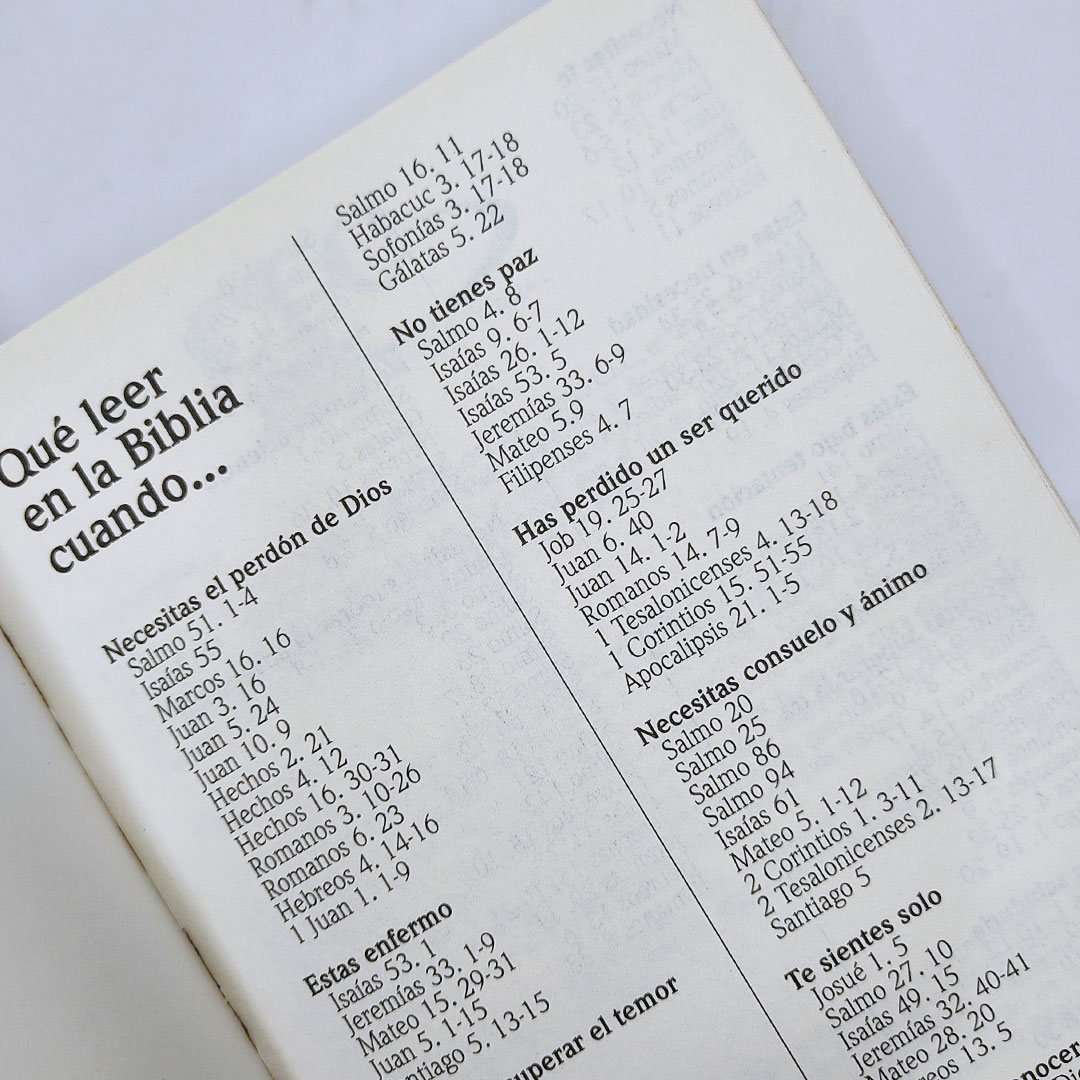 Qué leer
en la Biblia
cuando...
Necesitas el perdón de Dios
Salmo 51. 1-4
Isaías 55
Marcos 16. 16
Juan 3. 16
Juan 5. 24
Juan 10. 9
Hechos 2. 21
Hechos 4. 12
Hechos 16. 30-31
Romanos 3. 10-26
Romanos 6. 23
Hebreos 4. 14-16
1 Juan 1. 1-9
Estas enfermo
Isaías 53. 1
Jeremías 33. 1-9
Mateo 15. 29-31
Juan 5. 1-15
5. 13-15
el temor
Salmo 16. 11
Habacuc 3. 17-18
Sofonías 3. 17-18
Gálatas 5. 22
No tienes paz
Salmo 4. 8
Isaías 9. 6-7
Isaías 26. 1-12
Isaías 53. 5
Jeremías 33. 6-9
Mateo 5.9
Filipenses 4. 7
Has perdido un ser querido
Job 19. 25-27
Juan 6. 40
Juan 14. 1-2
Romanos 14. 7-9
1 Tesalonicenses 4. 13-18
1 Corintios 15. 51-55
Apocalipsis 21. 1-5
Necesitas consuelo y ánimo
Salmo 20
Salmo 25
Salmo 86
Salmo 94
Isaías 61
Mateo 5. 1-12
2 Corintios 1. 3-11
2 Tesalonicenses 2. 13-17
Santiago 5
Te sientes solo
Josué 1. 5
Salmo 27. 10
Isaías 49. 15
Jeremías 32. 40-41
Mateo 28. 20
13. 5